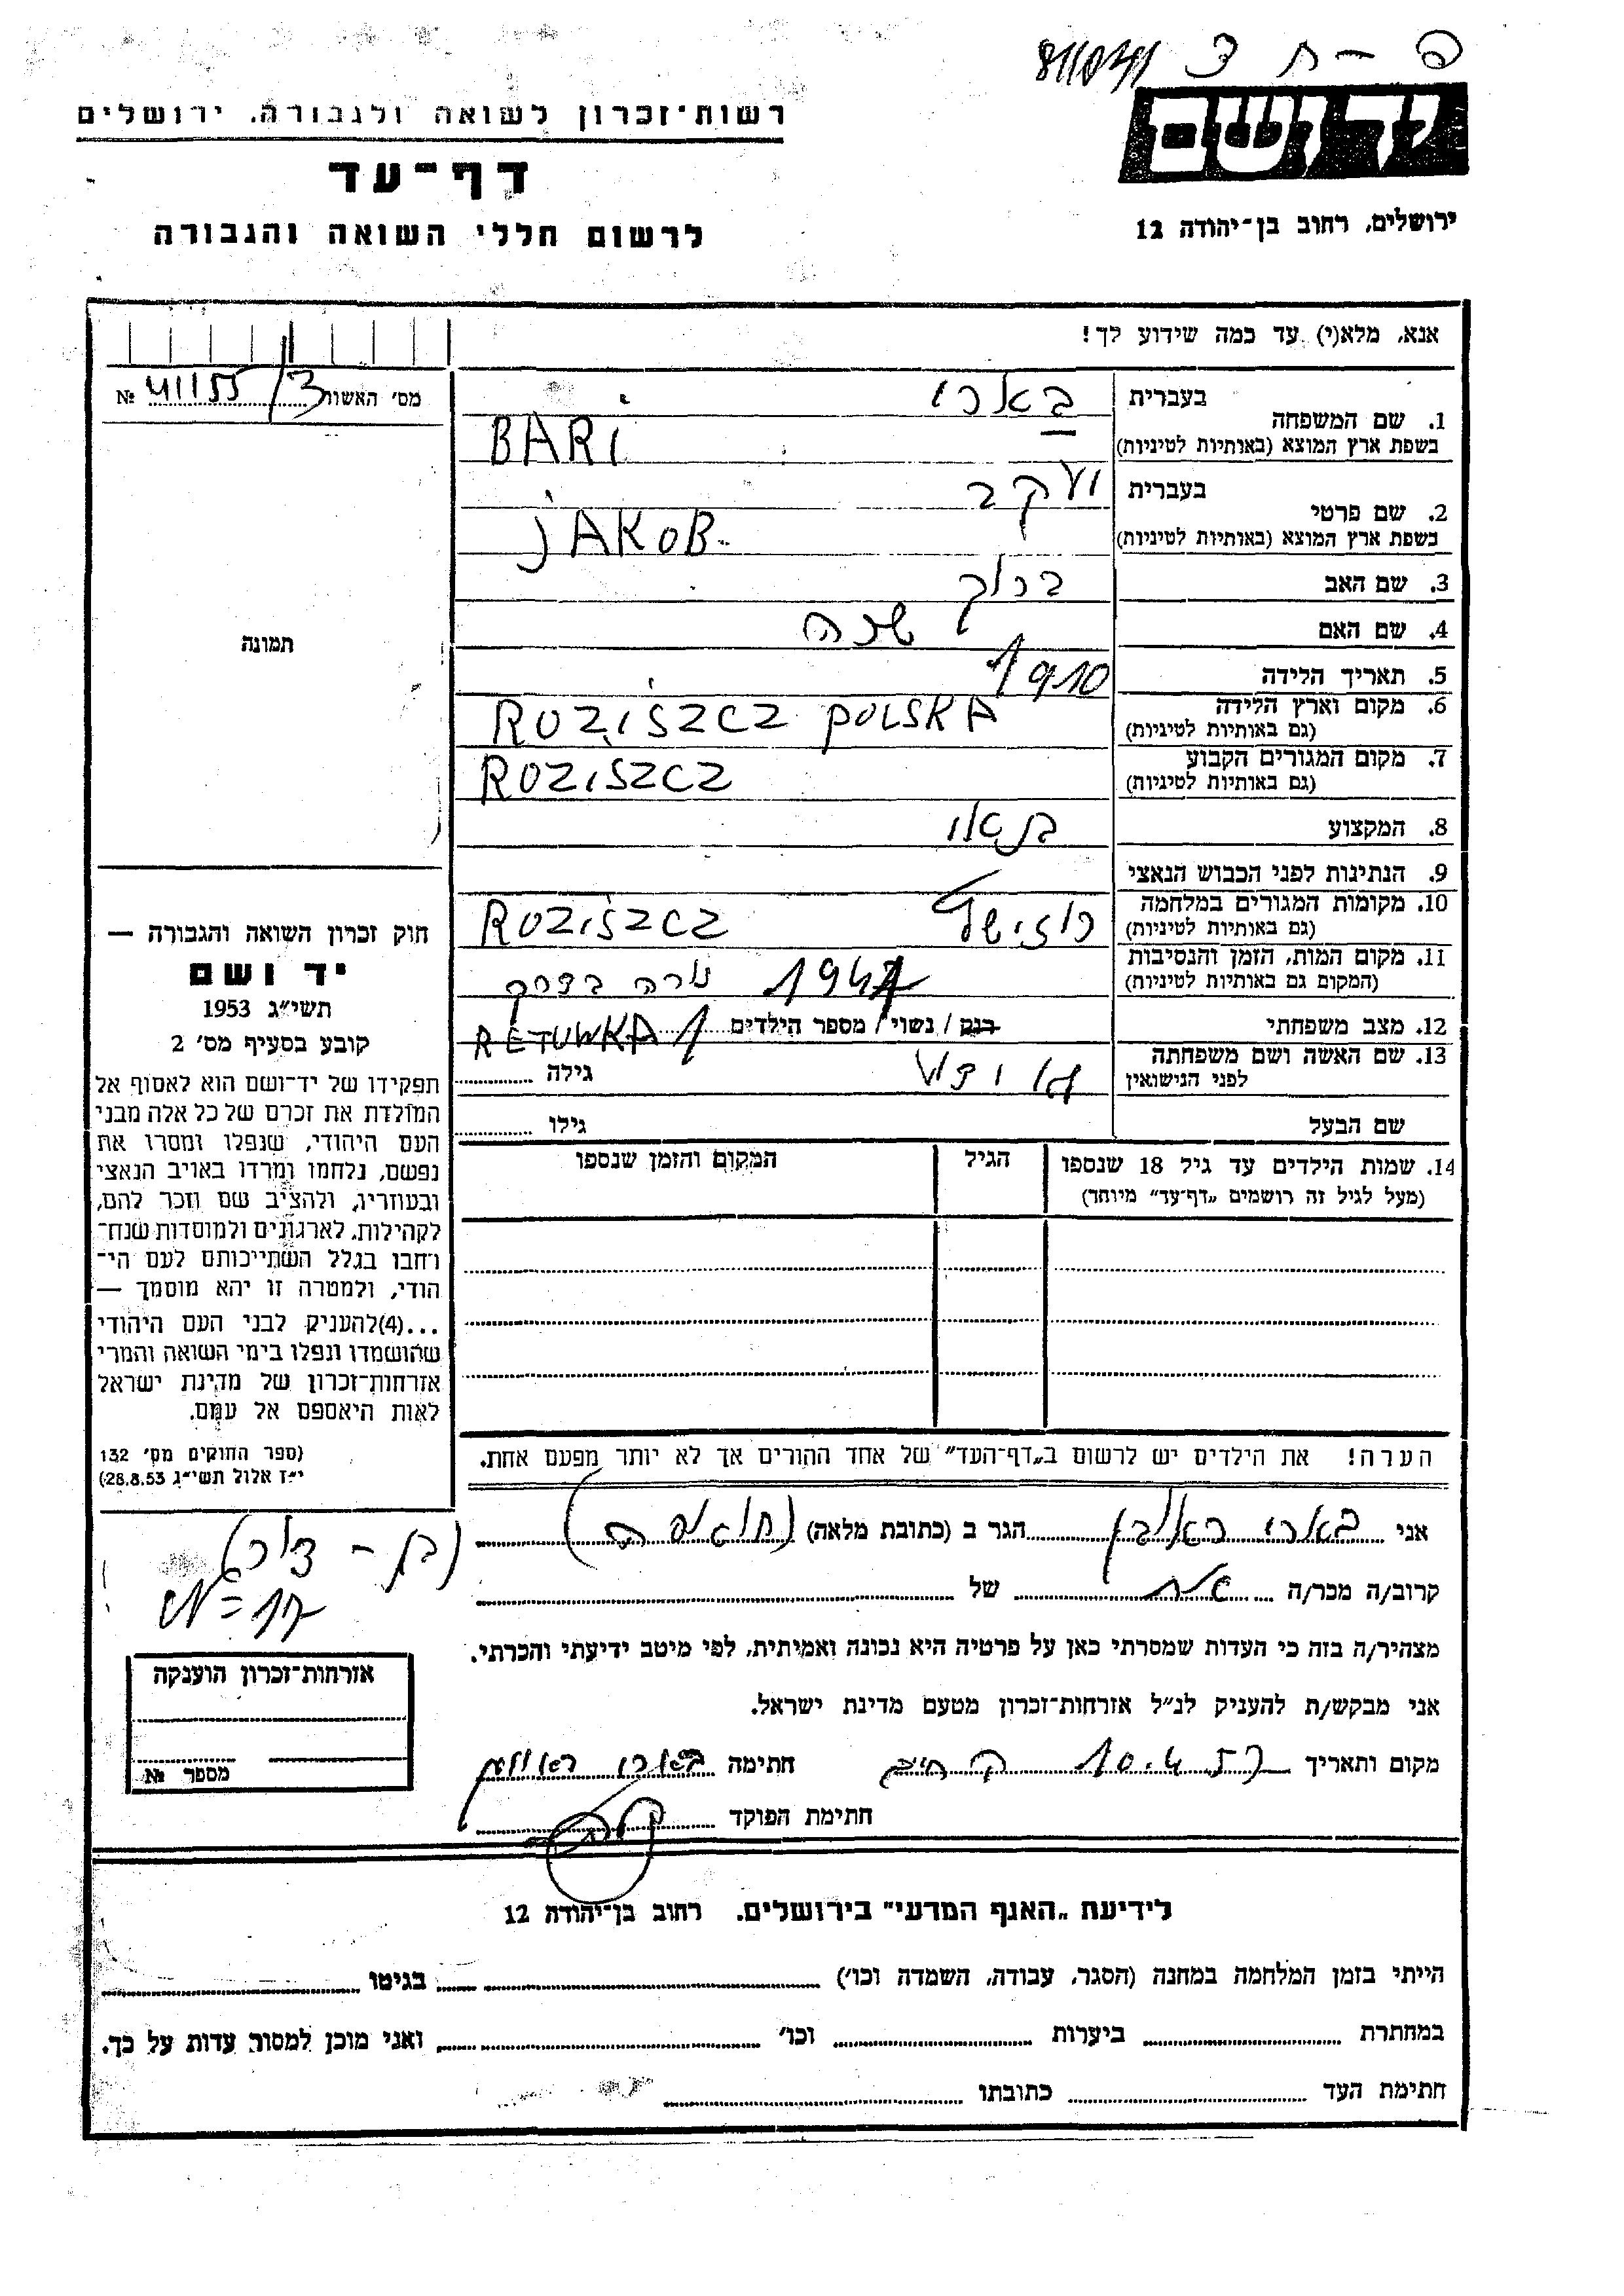 פ – ח ד
רשות־זכרון לשואה ולגבורה, ירושלים
דף־עד
לרשום חללי השואה והגבורה
יד ושם
ירושלים, רחוב בן־יהודה 12
אנא, מלא(י) עד כמה שידוע לך!
מס׳ האשור 41155/3 №
1. שם המשפחה בעברית בארי
בשפת ארץ המוצא (באותיות לטיניות) BARI
2. שם פרטי בעברית יעקב
בשפת ארץ המוצא (באותיות לטיניות) JAKOB
3. שם האב ברוך
4. שם האם שרה
5. תאריך הלידה 1910
6. מקום וארץ הלידה (גם באותיות לטיניות) ROZISZCZ POLSKA
7. מקום המגורים הקבוע (גם באותיות לטיניות) ROZISZCZ
8. המקצוע
9. הנתינות לפני הכבוש הנאצי
10. מקומות המגורים במלחמה (גם באותיות לטיניות) ROZISZCZ
11. מקום המות, הזמן והנסיבות (המקום גם באותיות לטיניות) נורה
12. מצב משפחתי רוק / נשוי / מספר הילדים 1 RETUWKA
13. שם האשה ושם משפחתה לפני הנישואין גילה
שם הבעל גילו
14. שמות הילדים עד גיל 18 שנספו הגיל המקום והזמן שנספו
(מעל לגיל זה רושמים „דף־עד״ מיוחד)
הערה! את הילדים יש לרשום ב„דף־העד״ של אחד ההורים אך לא יותר מפעם אחת.
תמונה
חוק זכרון השואה והגבורה —
יד ושם
תשי״ג 1953
קובע בסעיף מס׳ 2
תפקידו של יד־ושם הוא לאסוף אל
המולדת את זכרם של כל אלה מבני
העם היהודי, שנפלו ומסרו את
נפשם, נלחמו ומרדו באויב הנאצי
ובעוזריו, ולהציב שם וזכר להם,
לקהילות, לארגונים ולמוסדות שנח־
רחבו בגלל השתייכותם לעם הי־
הודי, ולמטרה זו יהא מוסמך —
...(4)להעניק לבני העם היהודי
שהושמדו ונפלו בימי השואה והמרי
אזרחות־זכרון של מדינת ישראל
לאות היאספם אל עמם.
(ספר החוקים מס׳ 132
י״ז אלול תשי״ג 28.8.53)
אני בארי ראובן הגר ב (כתובת מלאה)
קרוב/ה מכר/ה אח של
מצהיר/ה בזה כי העדות שמסרתי כאן על פרטיה היא נכונה ואמיתית, לפי מיטב ידיעתי והכרתי.
אני מבקש/ת להעניק לנ״ל אזרחות־זכרון מטעם מדינת ישראל.
מקום ותאריך 10.4 חתימה בארי ראובן
חתימת הפוקד
אזרחות־זכרון הוענקה
מספר №
לידיעת „האגף המדעי״ בירושלים, רחוב בן־יהודה 12
הייתי בזמן המלחמה במחנה (הסגר, עבודה, השמדה וכו׳) בגיטו
במחתרת ביערות וכו׳ ואני מוכן למסור עדות על כך.
חתימת העד כתובתו